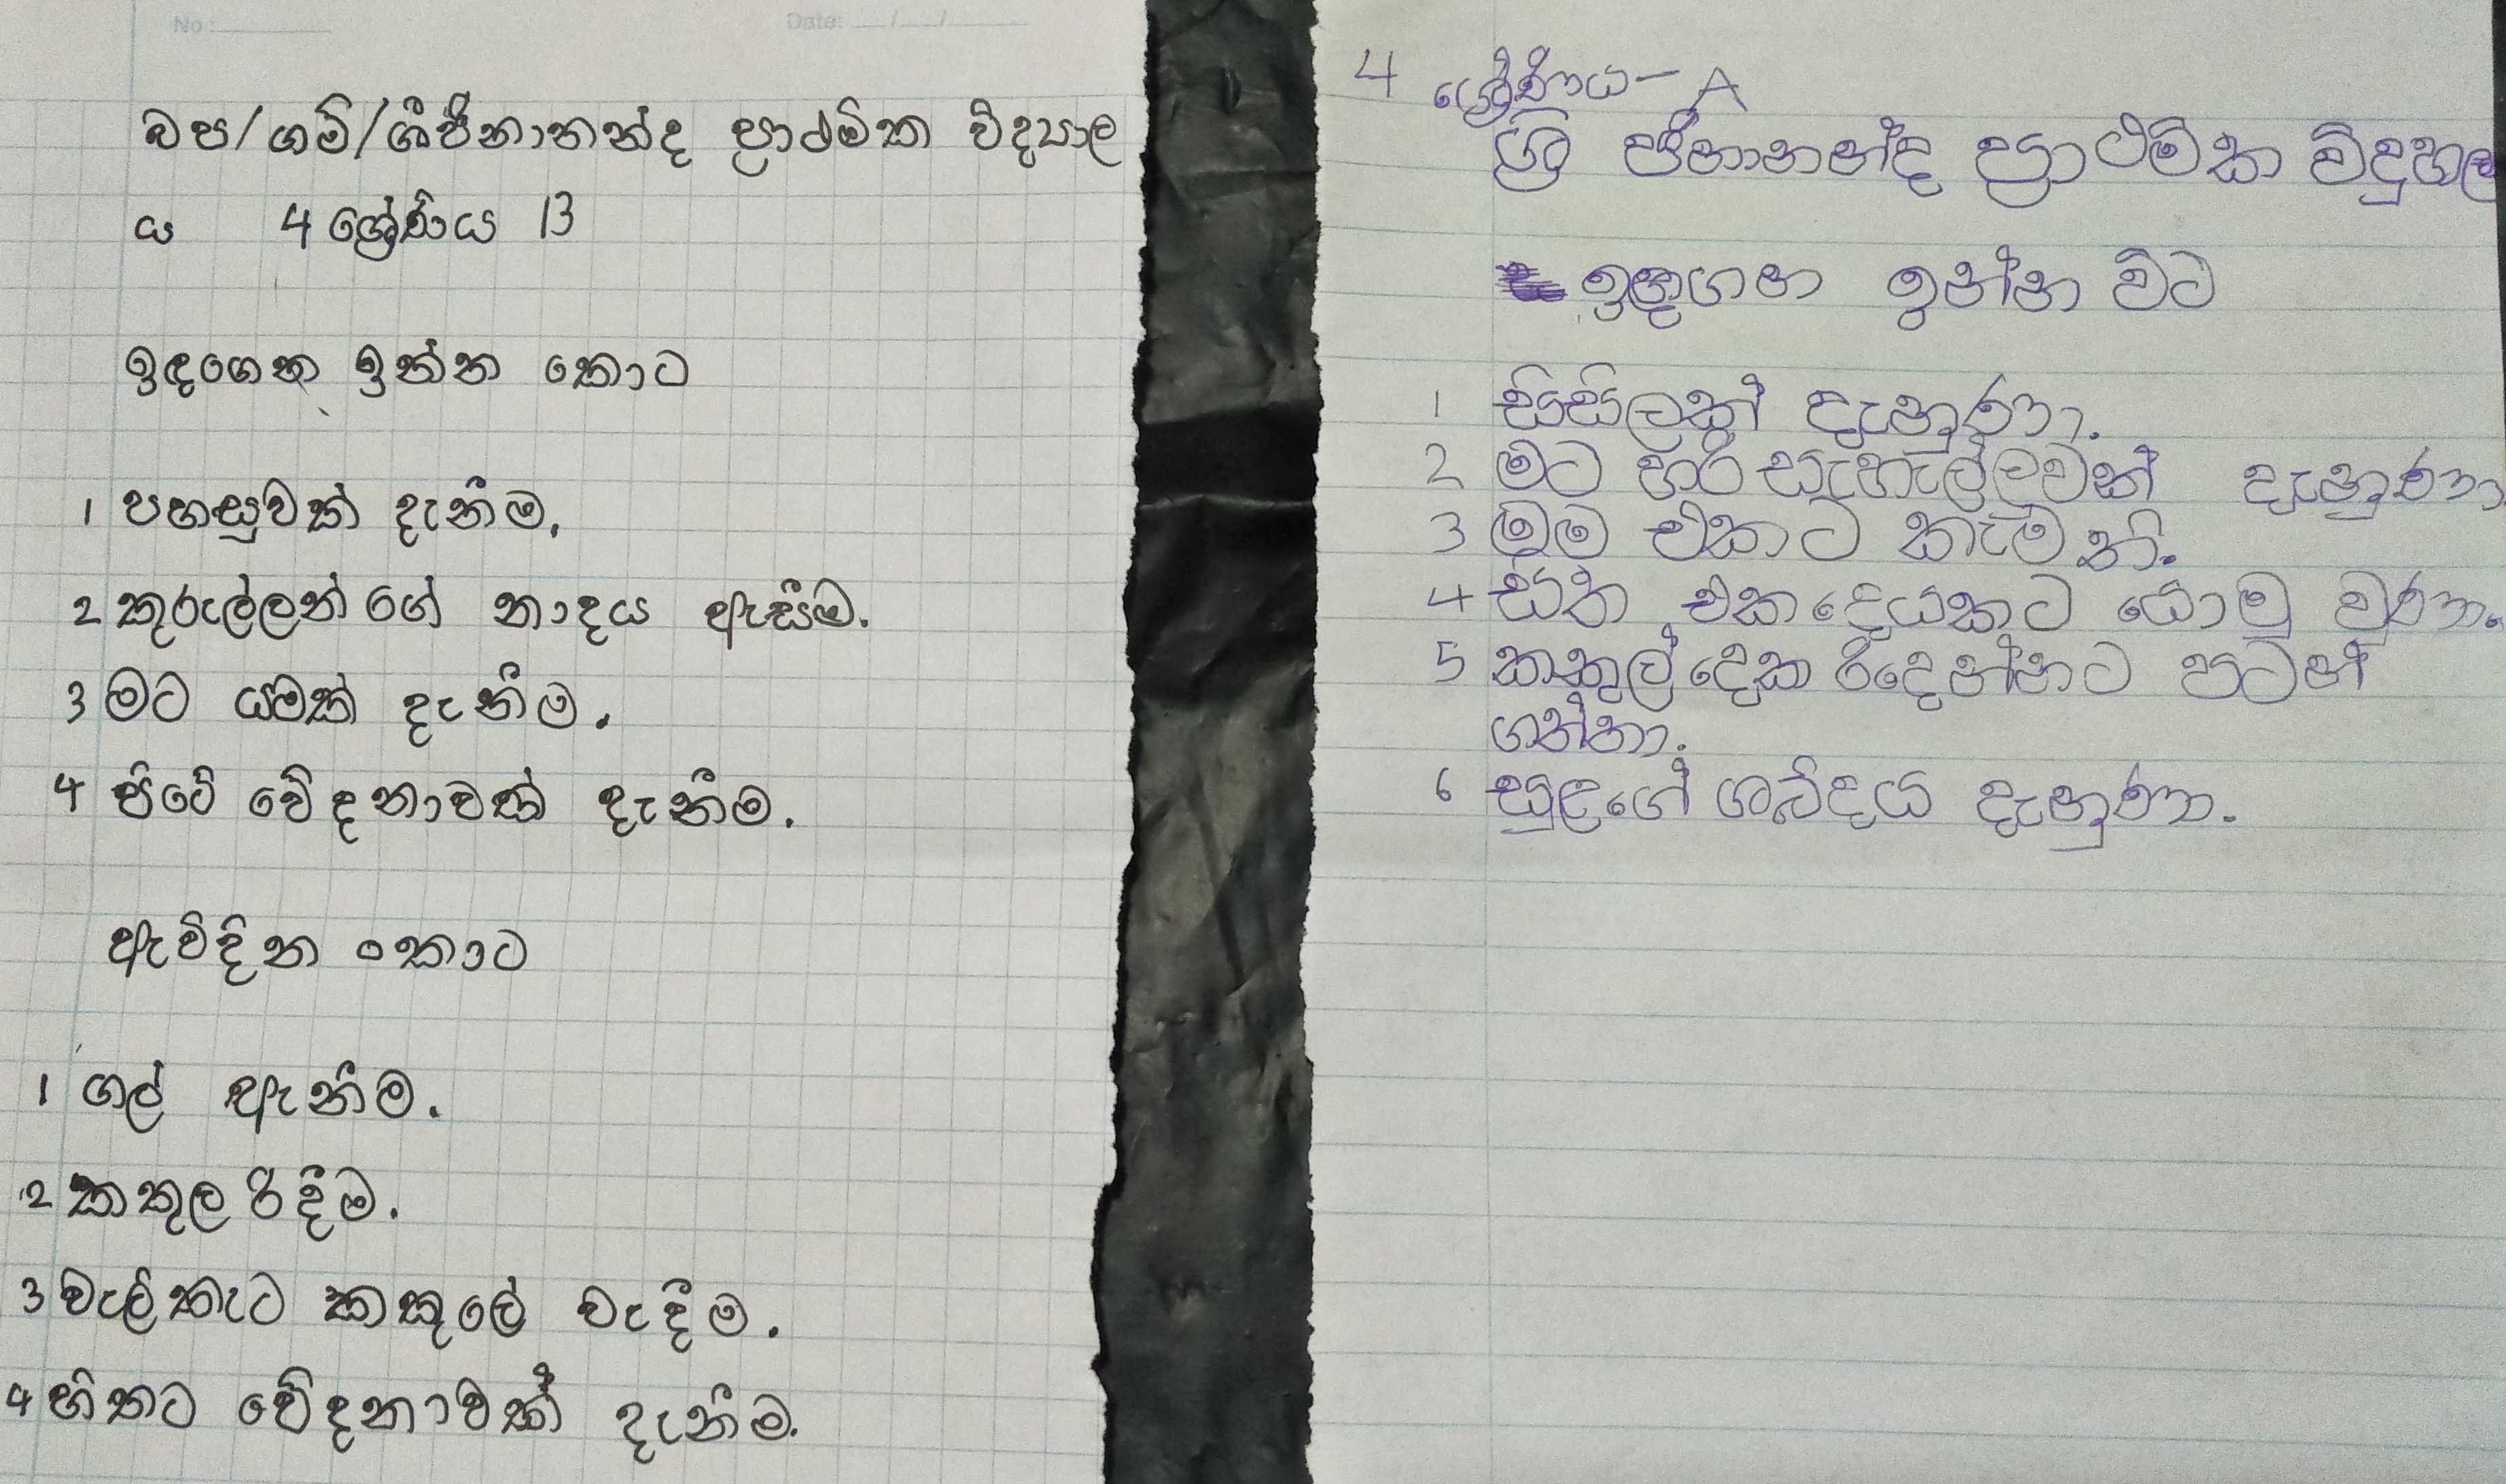 No : Date: / /
බප/ගම්/ශ්‍රීජිනානන්ද ප්‍රාථමික විද්‍යාල
ය 4 ශ්‍රේණිය B
ඉඳගෙන ඉන්න කොට
1 පහසුවක් දැනීම.
2 කුරුල්ලන් ගේ නාදය ඇසීම.
3 මට යමක් දැනීම.
4 පිටේ වේදනාවක් දැනීම.
ඇවිදින කොට
1 ගල් ඇනීම.
2 කකුල රිදීම.
3 වැලිකැට කකුලේ වැදීම.
4 හිතට වේදනාවක් දැනීම.
4 ශ්‍රේණිය - A
ශ්‍රී ජිනානන්ද ප්‍රාථමික විදුහල
ඉඳගන ඉන්න විට
1 සිසිලක් දැනුණා.
2 මට හරි සැහැල්ලුවක් දැනුණා
3 මම එකට කැමති.
4 සිත එක දෙයකට යොමු වුණා.
5 කකුල් දෙක රිදෙන්නට පටන්
ගත්තා.
6 සුළගේ ශබ්දය දැනුණා.